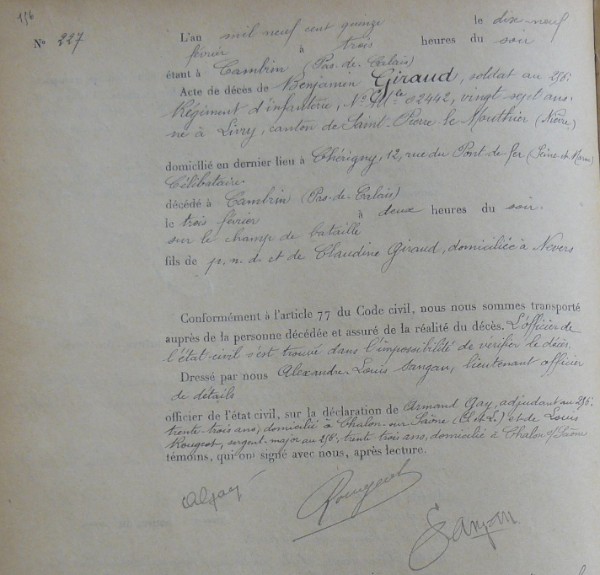 156
N° 227
L'an mil neuf cent quinze le dix-neuf
février à trois heures du soir
étant à Cambrin (Pas-de-Calais)
Acte de décès de Benjamin Giraud, soldat au 256e
Régiment d'infanterie, N° Mle 02442, vingt sept ans
né à Livry, canton de Saint-Pierre-le-Mouthier (Nièvre)
domicilié en dernier lieu à 12, rue du Pont de fer (Seine et Marne)
Célibataire
décédé à Cambrin (Pas-de-Calais)
le trois février à deux heures du soir
sur le champ de bataille
fils de p. n. d. et de Claudine Giraud, domiciliée à Nevers
Conformément à l'article 77 du Code civil, nous nous sommes transporté
auprès de la personne décédée et assuré de la réalité du décès. L'officier de
l'état-civil s'est trouvé dans l'impossibilité de vérifier le décès.
Dressé par nous Alexandre Louis officier
de détails
officier de l'état civil, sur la déclaration de Armand Gay, adjudant au 256e
trente-trois ans, domicilié à Chalon-sur-Saône (S.et.L.) et de Louis
Rougeot, sergent-major au 256e, trente trois ans, domicilié à Chalon s/Saône
témoins, qui ont signé avec nous, après lecture.
Rougeot